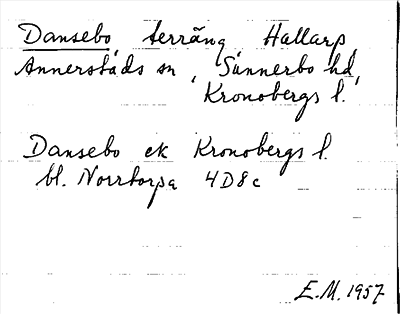 Dansebo, terräng, Hallarp,
Annerstads sn, Sunnerbo hd,
Kronobergs l.
Dansebo ek Kronobergs l.
bl. Norrtorpa 4D8c
E.M. 1957